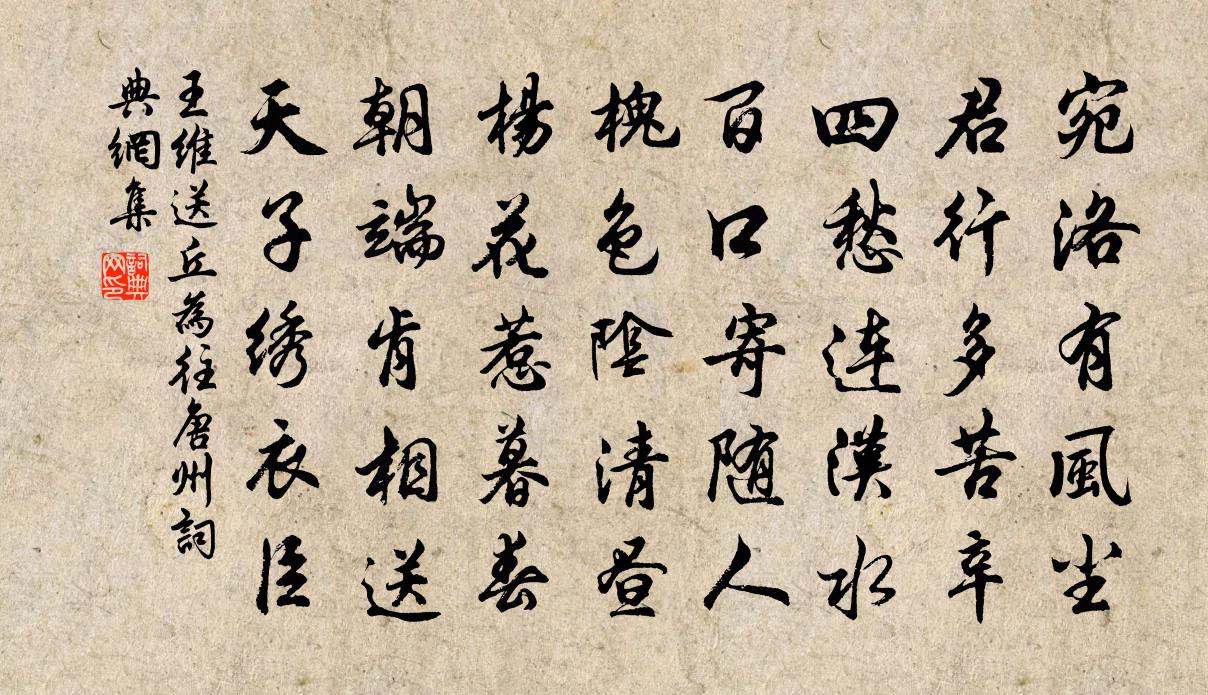 宛洛有風尘
君行多苦辛
四愁连漢水
百口寄随人
槐色陰清昼
楊花惹暮春
朝端肯相送
天子绣衣臣
王維送丘為往唐州詞
典網集
詞典
网印